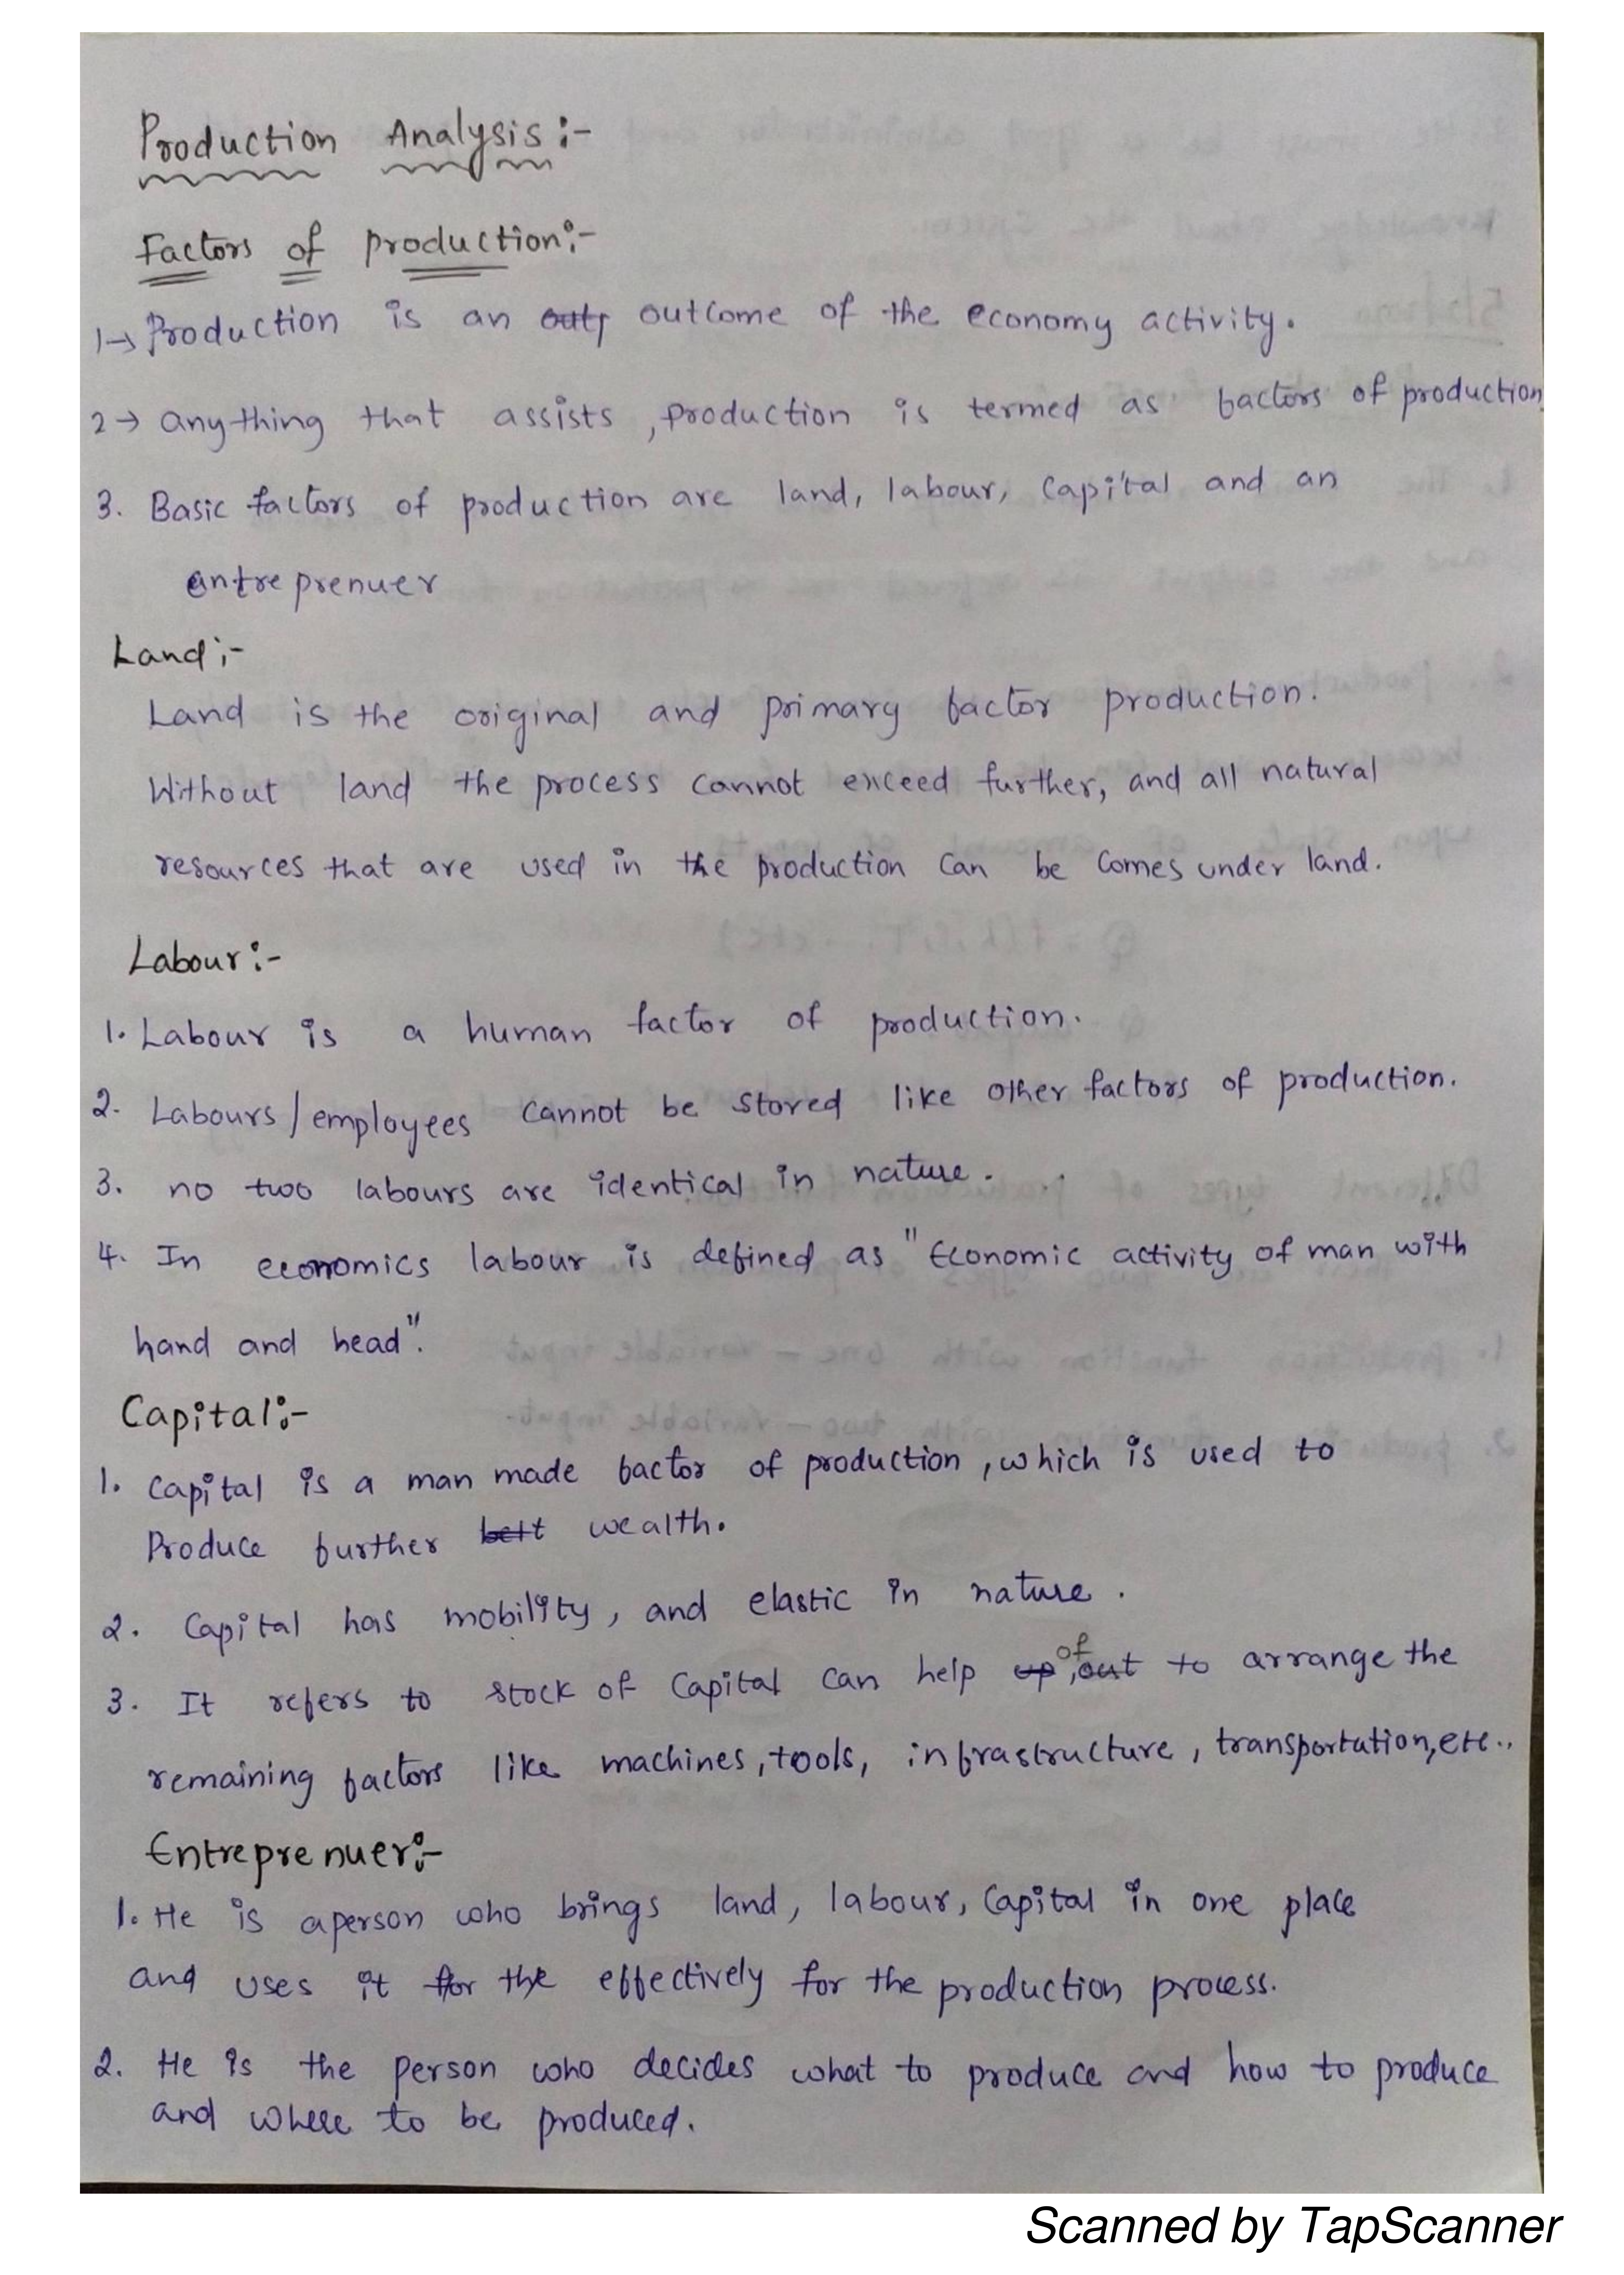 Production Analysis :-
Factors of production:-
1→ Production is an outp outcome of the economy activity.
2→ anything that assists, production is termed as factors of production
3. Basic factors of production are land, labour, capital and an
entreprenuer
Land :-
Land is the original and primary factor production.
Without land the process cannot exceed further, and all natural
resources that are used in the production can be comes under land.
Labour :-
1. Labour is a human factor of production.
2. Labours/employees cannot be stored like other factors of production.
3. no two labours are identical in nature.
4. In economics labour is defined as "Economic activity of man with
hand and head".
Capital :-
1. Capital is a man made factor of production, which is used to
Produce further wealth.
2. Capital has mobility, and elastic in nature.
3. It refers to stock of capital can help up of, out to arrange the
remaining factors like machines, tools, infrastructure, transportation, etc..
Entreprenuer :-
1. He is a person who brings land, labour, capital in one place
and uses it for the effectively for the production process.
2. He is the person who decides what to produce and how to produce
and where to be produced.
Scanned by TapScanner